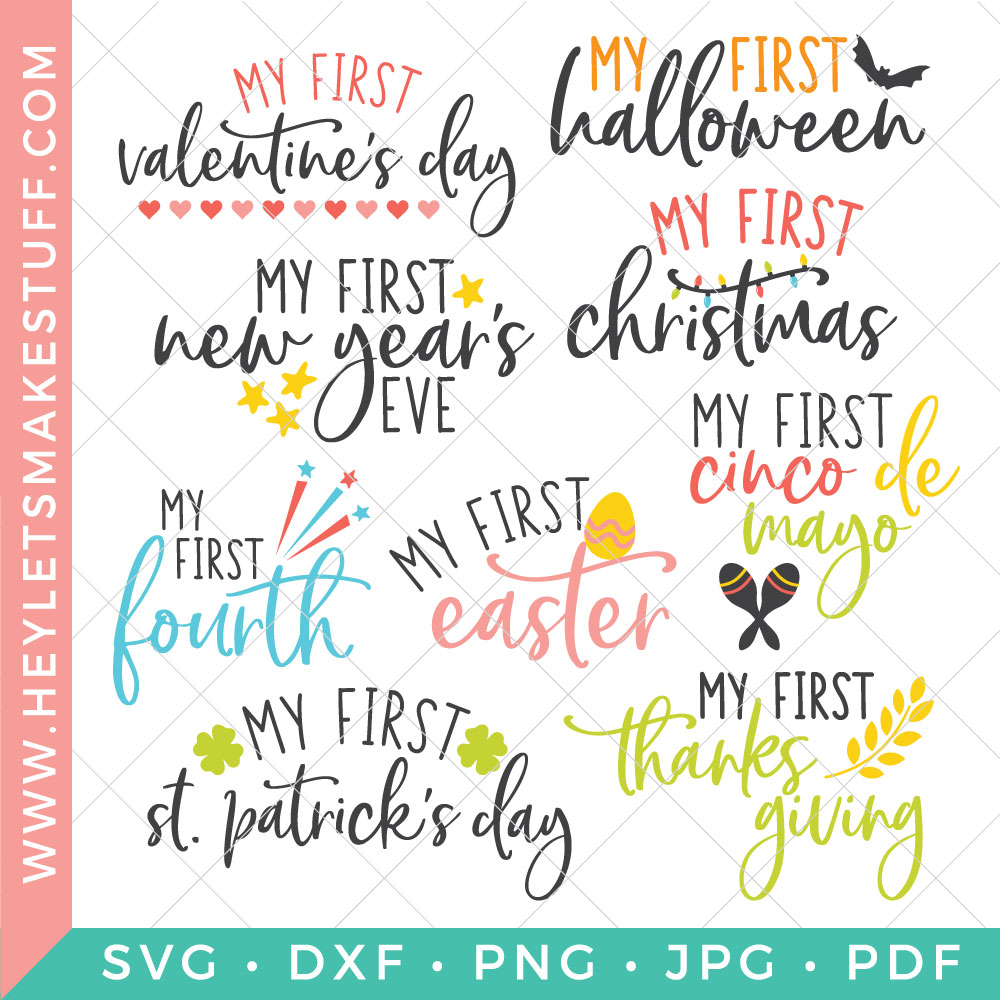 WWW.HEYLETSMAKESTUFF.COM
MY FIRST
valentine's day
MY FIRST
halloween
MY FIRST
new year's
EVE
MY FIRST
christmas
MY FIRST
cinco de
mayo
MY
FIRST
fourth
MY FIRST
easter
MY FIRST
st. patrick's day
MY FIRST
thanks
giving
SVG • DXF • PNG • JPG • PDF